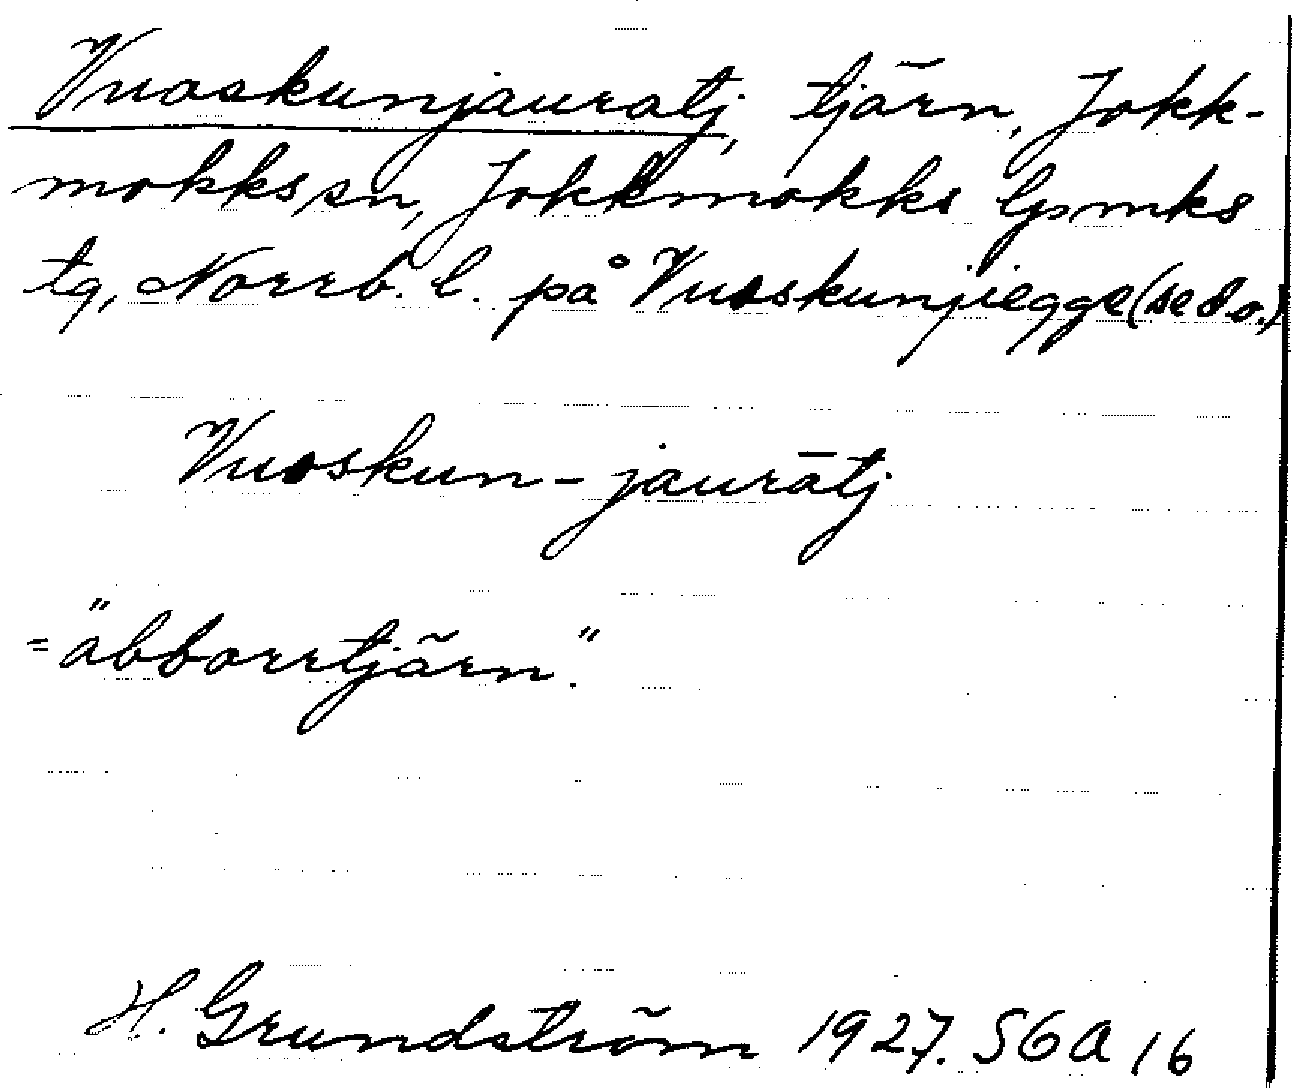 Vuoskunjauratj, tjärn, Jokk-
mokks sn, Jokkmokks lpmks
tg, Norrb. l. på Vuoskunjiegge (se d. o.)
Vuoskun-jauratj
="abborrtjärn."
H. Grundström 1927. SGA 16